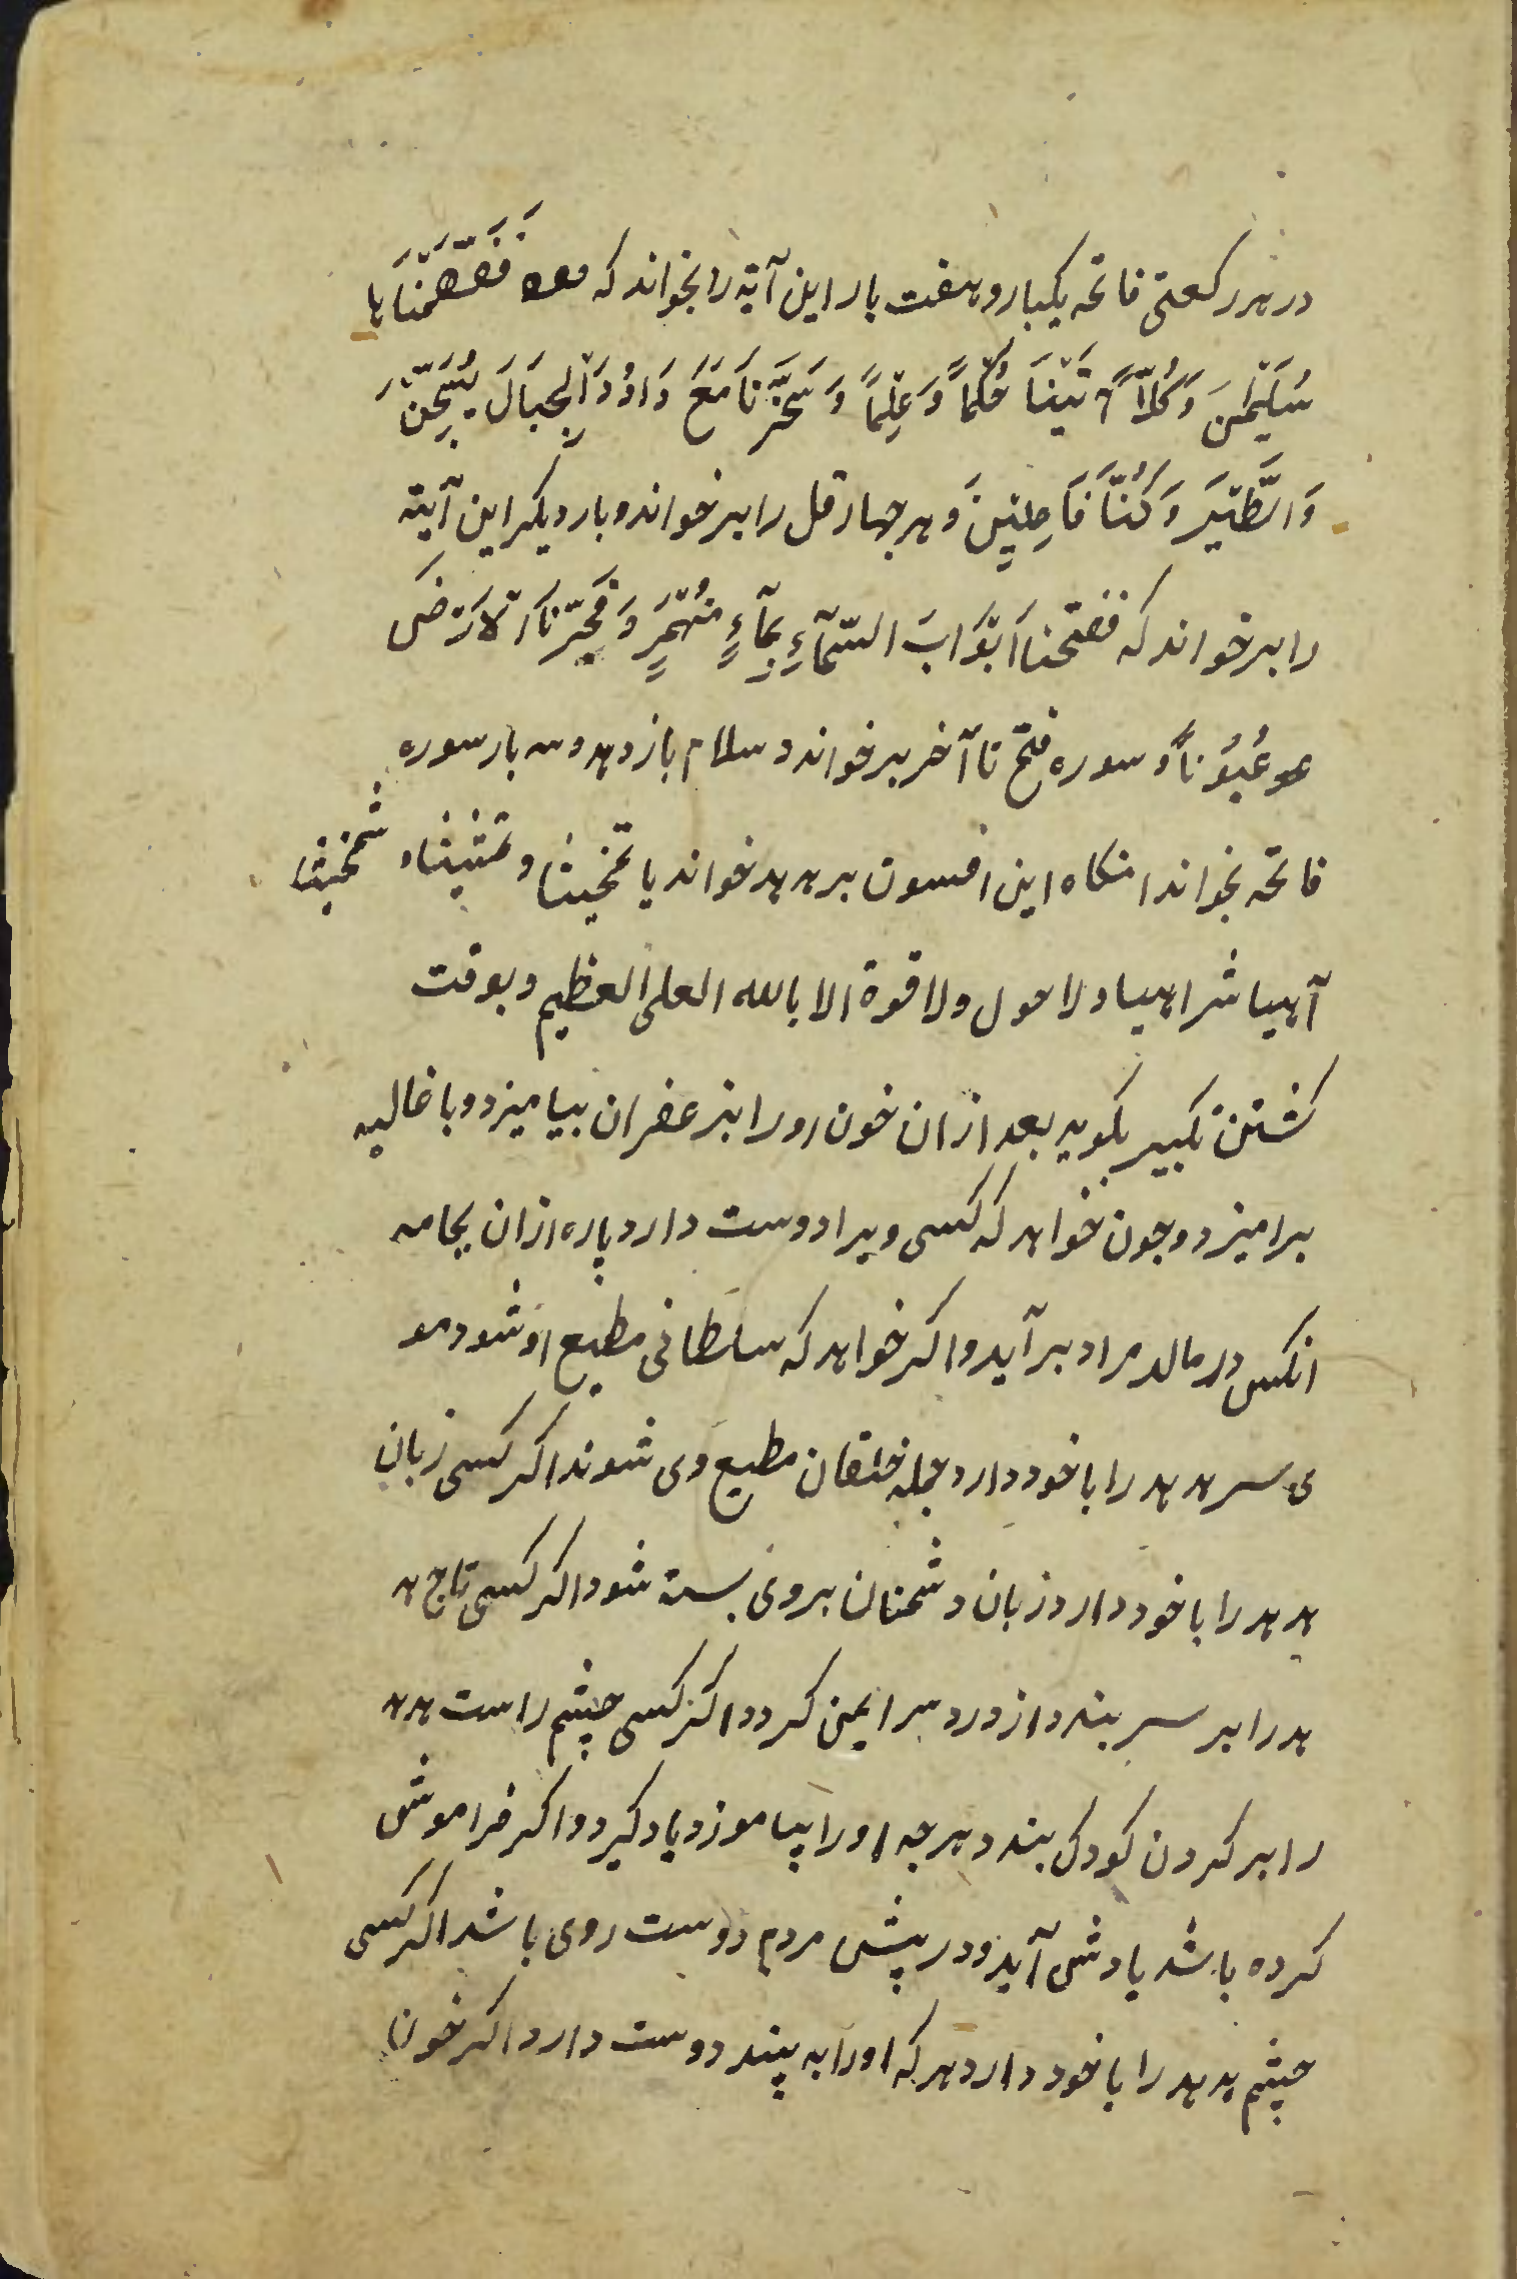 در هر رکعتی فاتحه یکبار و هفت بار این آیة را بخواند که فَفَهَّمْنَاهَا
سُلَیْمٰنَ وَکُلّاً آتَیْنَا حُکْماً وَعِلْماً وَسَخَّرْنَا مَعَ دَاوُدَ الْجِبَالَ یُسَبِّحْنَ
وَالطَّیْرَ وَکُنَّا فَاعِلِیْنَ و هر چهار قل را برخواند و بار دیکر این آیة
را برخواند که ففتحنا اَبْوَابَ السَّمَآءِ بِمَآءٍ مُنْهَمِرٍ وَفَجَّرْنَا الْاَرْضَ
عُیُوْناً و سوره فتح تا آخر برخواند و سلام باز دهد و سه بار سوره
فاتحه بخواند انکاه این افسون بر هدهد خواند یا تمخیثا و شمخیثا
آهیا شراهیا و لا حول ولا قوة الا بالله العلی العظیم و بوقت
کشتن تکبیر بکوید بعد ازان خون او را بزعفران بیامیزد و با غالیه
برامیزد و چون خواهد که کسی ویرا دوست دارد پاره ازان بجامه
انکس درمالد مراد برآید و اکر خواهد که سلطانی مطیع او شود مو
ی سر هدهد را با خود دارد جمله خلقان مطیع وی شوند اکر کسی زبان
هدهد را با خود دارد زبان دشمنان بروی بسته شود اکر کسی تاج ه
هد را بر سر بندد از درد سر ایمن کردد اکر کسی چشم راست هد
را بر کردن کودک بندد هرچه او را بیاموزد یاد کیرد و اکر فراموش
کرده باشد یادش آید و در پیش مردم دوست روی باشد اکر کسی
چشم هدهد را با خود دارد هر که او را به بیند دوست دارد اکر خون